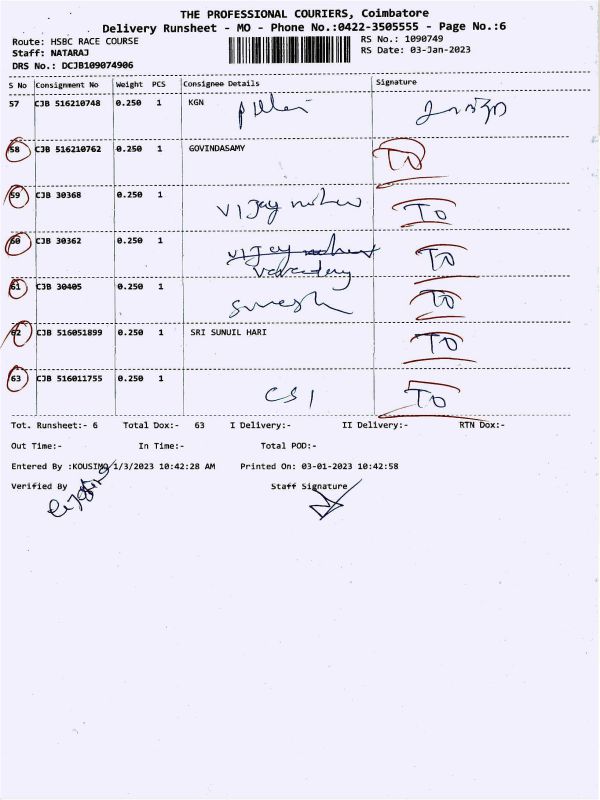 THE PROFESSIONAL COURIERS, Coimbatore
Delivery Runsheet - MO - Phone No.:0422-3505555 - Page No.:6
Route: HSBC RACE COURSE RS No.: 1090749
Staff: NATARAJ RS Date: 03-Jan-2023
DRS No.: DCJB109074906
S No Consignment No Weight PCS Consignee Details Signature
57 CJB 516210748 0.250 1 KGN
58 CJB 516210762 0.250 1 GOVINDASAMY TO
59 CJB 30368 0.250 1 Vijay TO
60 CJB 30362 0.250 1 Vijay TO
61 CJB 30405 0.250 1 Suresh TO
62 CJB 516051899 0.250 1 SRI SUNUIL HARI TO
63 CJB 516011755 0.250 1 CSI TO
Tot. Runsheet:- 6 Total Dox:- 63 I Delivery:- II Delivery:- RTN Dox:-
Out Time:- In Time:- Total POD:-
Entered By :KOUSIMO 1/3/2023 10:42:28 AM Printed On: 03-01-2023 10:42:58
Verified By Staff Signature